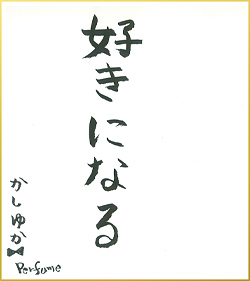 好きになる
かしゆか
Perfume